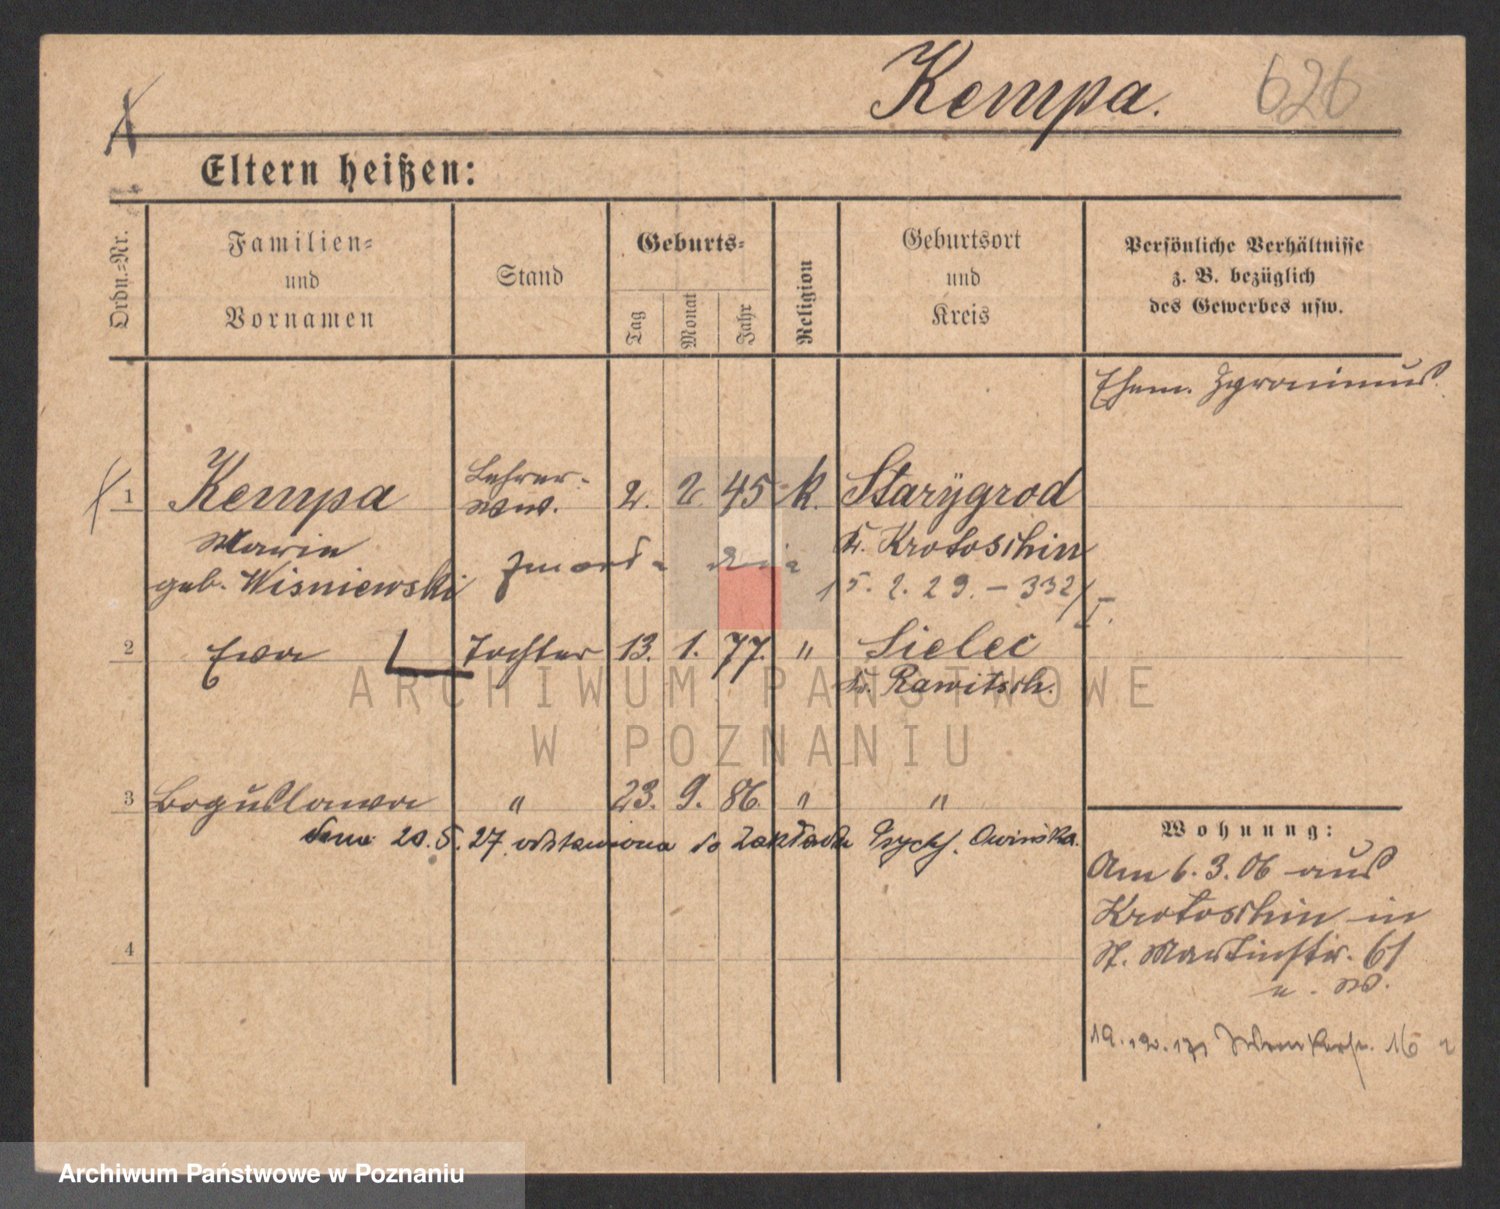 Kempa. 626
Eltern heißen:
Ordn.-Nr.
Familien-
und
Vornamen
Stand
Geburts-
Tag
Monat
Jahr
Religion
Geburtsort
und
Kreis
Persönliche Verhältnisse
z. B. bezüglich
des Gewerbes usw.
Ehem. Hyronimus.
1 Kempa Lehrer- 2. 2. 45 k. Starygrod
Ww.
Marie Kr. Krotoschin
geb. Wisniewski zmarła dnia
15. 2. 29. – 332/I.
2 Ewa Tochter 13. 1. 77. " Sielec
Kr. Rawitsch.
ARCHIWUM PAŃSTWOWE
W POZNANIU
3 Boguslawa " 23. 9. 86. " "
20. 5. 27. odstawiona do Zakładu Psych. Owińska.
4
Wohnung:
Am 6. 3. 06 aus
Krotoschin in
St. Martinstr. 61
u. W.
16
Archiwum Państwowe w Poznaniu